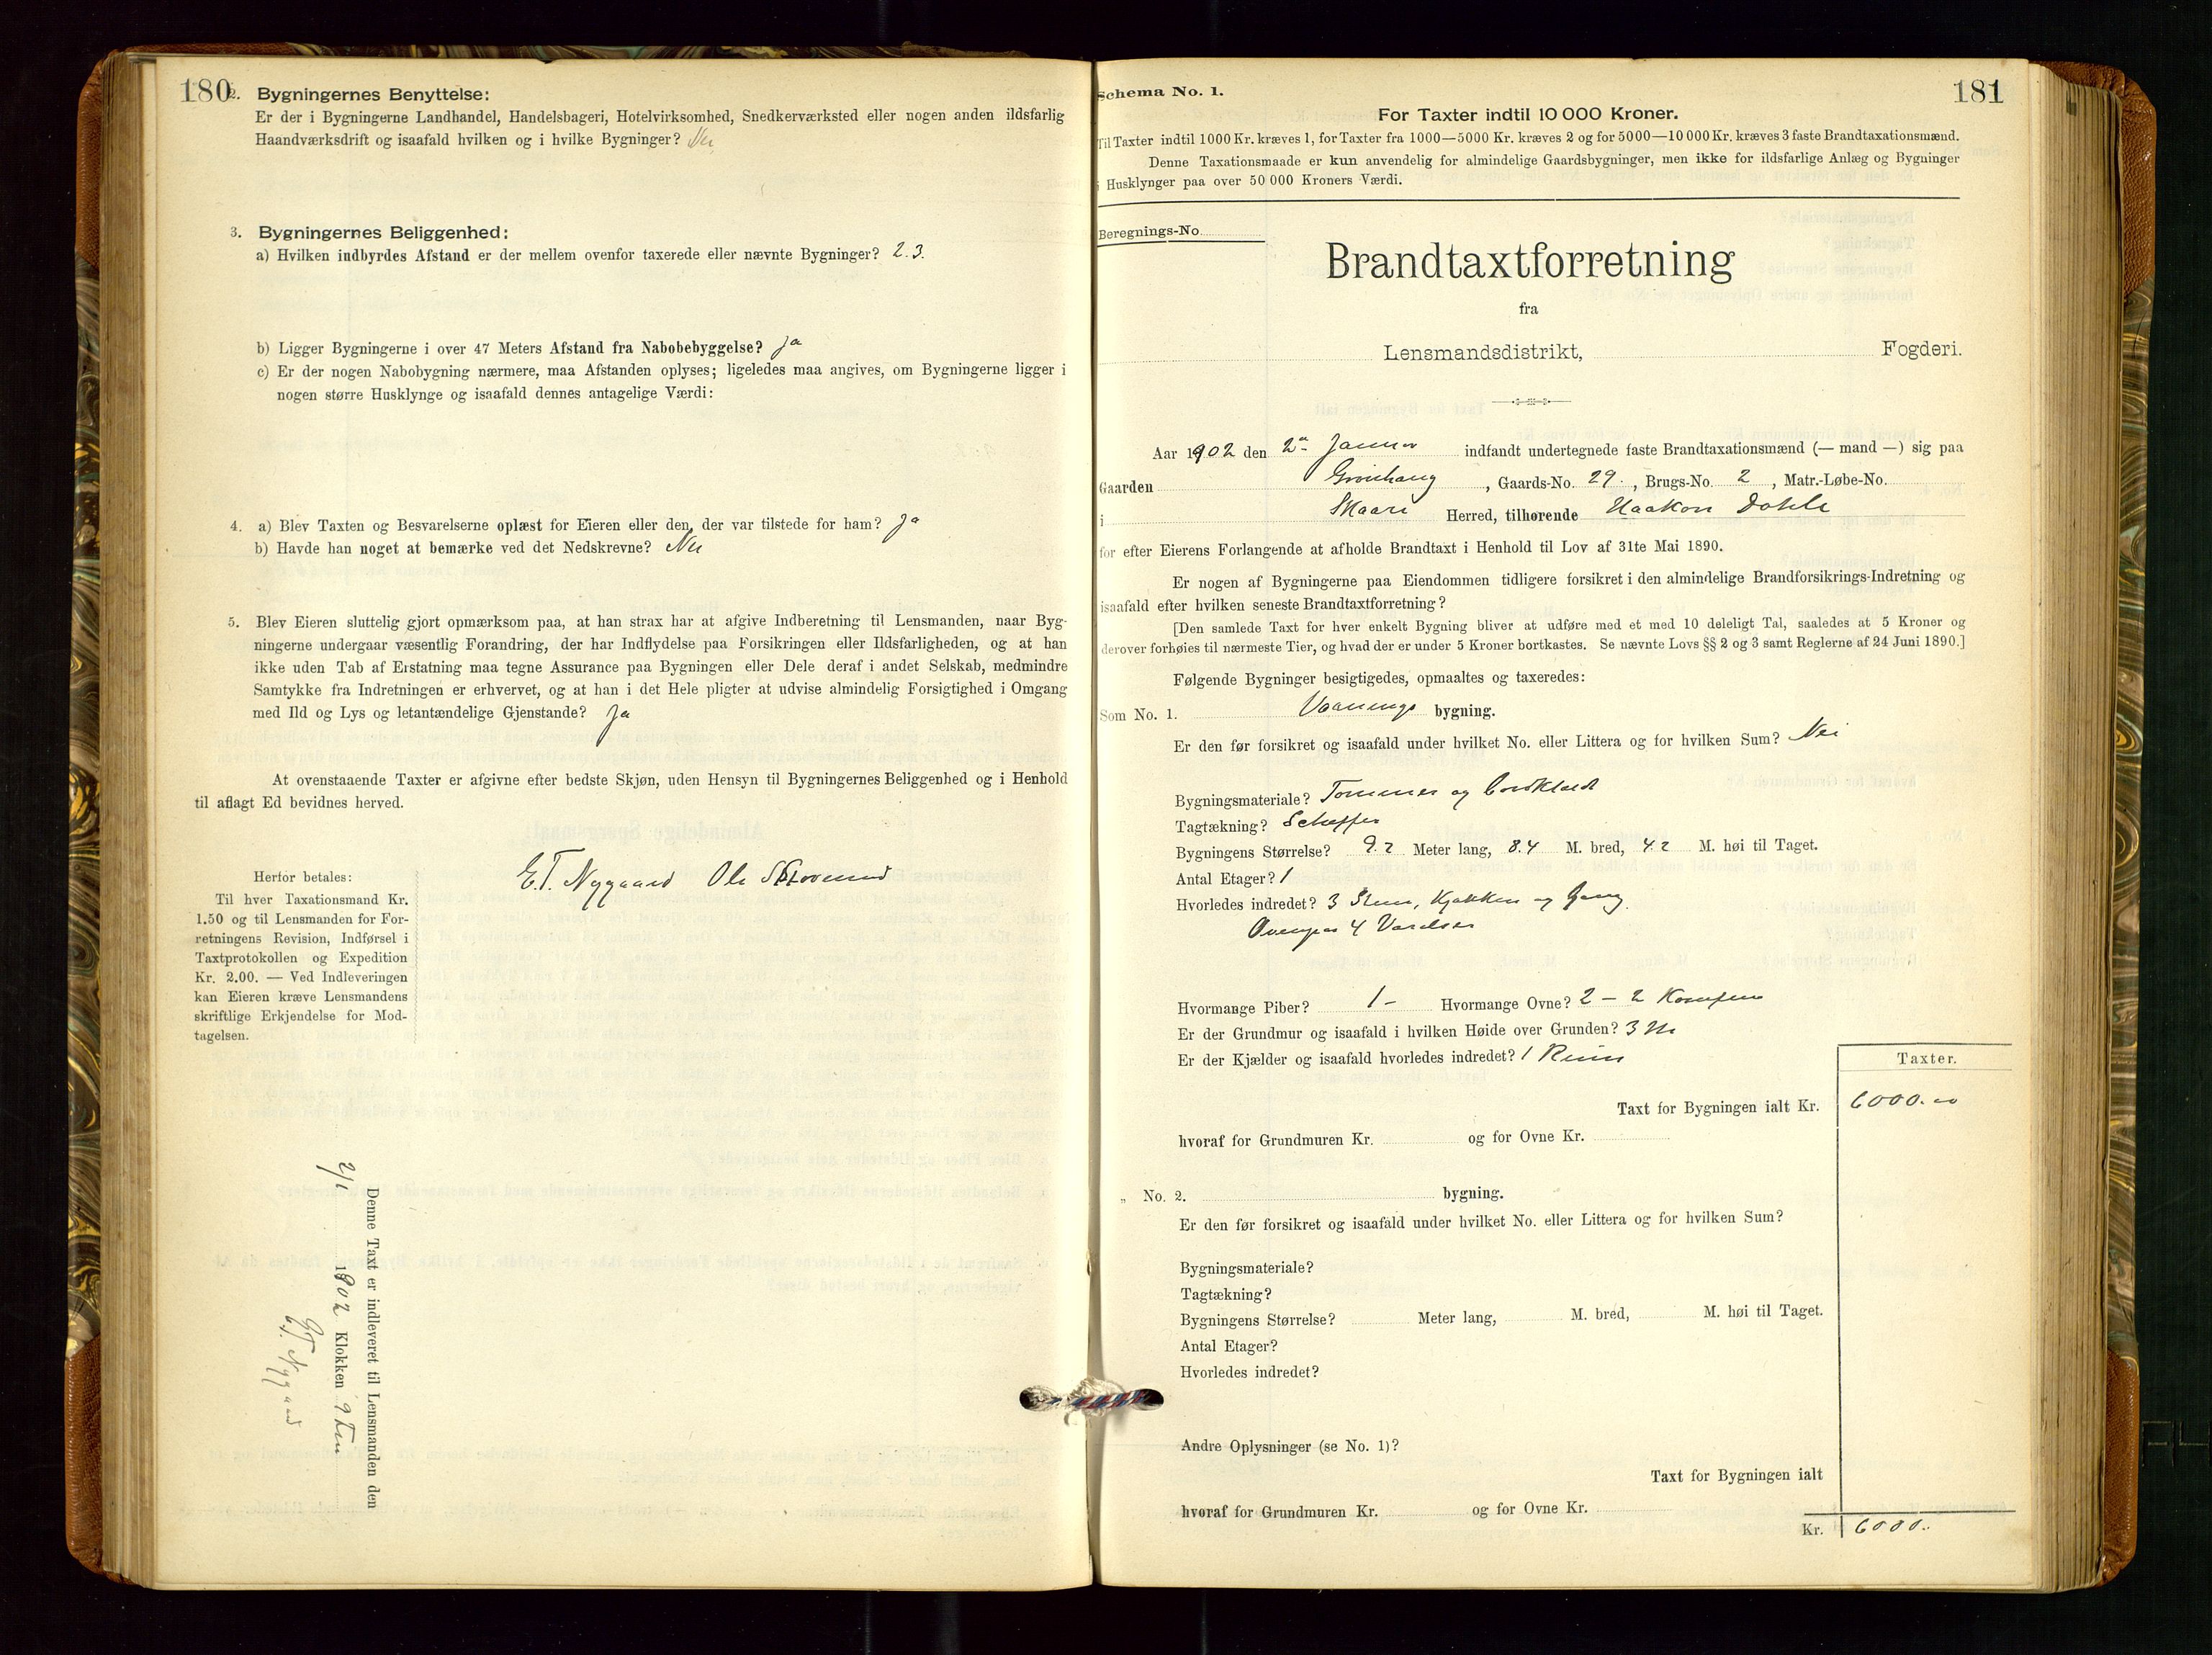 180
2. Bygningernes Benyttelse:
Er der i Bygningerne Landhandel, Handelsbageri, Hotelvirksomhed, Snedkerværksted eller nogen anden ildsfarlig
Haandværksdrift og isaafald hvilken og i hvilke Bygninger? Nei
3. Bygningernes Beliggenhed:
a) Hvilken indbyrdes Afstand er der mellem ovenfor taxerede eller nævnte Bygninger? 2.3.
b) Ligger Bygningerne i over 47 Meters Afstand fra Nabobebyggelse? Ja
c) Er der nogen Nabobygning nærmere, maa Afstanden oplyses; ligeledes maa angives, om Bygningerne ligger i
nogen større Husklynge og isaafald dennes antagelige Værdi:
4. a) Blev Taxten og Besvarelserne oplæst for Eieren eller den, der var tilstede for ham? Ja
b) Havde han noget at bemærke ved det Nedskrevne? Nei
5. Blev Eieren sluttelig gjort opmærksom paa, at han strax har at afgive Indberetning til Lensmanden, naar Byg-
ningerne undergaar væsentlig Forandring, der har Indflydelse paa Forsikringen eller Ildsfarligheden, og at han
ikke uden Tab af Erstatning maa tegne Assurance paa Bygningen eller Dele deraf i andet Selskab, medmindre
Samtykke fra Indretningen er erhvervet, og at han i det Hele pligter at udvise almindelig Forsigtighed i Omgang
med Ild og Lys og letantændelige Gjenstande? Ja
At ovenstaaende Taxter er afgivne efter bedste Skjøn, uden Hensyn til Bygningernes Beliggenhed og i Henhold
til aflagt Ed bevidnes herved.
E.T. Nygaard Ole
Herfor betales:
Til hver Taxationsmand Kr.
1.50 og til Lensmanden for For-
retningens Revision, Indførsel i
Taxtprotokollen og Expedition
Kr. 2.00. — Ved Indleveringen
kan Eieren kræve Lensmandens
skriftlige Erkjendelse for Mod-
tagelsen.
Denne Taxt er indleveret til Lensmanden den
2/1 1902 Klokken 9 Fm
E.T. Nygaard
181
Schema No. 1.
For Taxter indtil 10 000 Kroner.
Til Taxter indtil 1000 Kr. kræves 1, for Taxter fra 1000—5000 Kr. kræves 2 og for 5000—10 000 Kr. kræves 3 faste Brandtaxationsmænd.
Denne Taxationsmaade er kun anvendelig for almindelige Gaardsbygninger, men ikke for ildsfarlige Anlæg og Bygninger
i Husklynger paa over 50 000 Kroners Værdi.
Beregnings-No.
Brandtaxtforretning
fra
Lensmandsdistrikt, Fogderi.
Aar 1902 den 2 Januar indfandt undertegnede faste Brandtaxationsmænd (— mand —) sig paa
Gaarden Grønhaug, Gaards-No. 29., Brugs-No. 2, Matr.-Løbe-No.
i Skaare Herred, tilhørende Haakon Dahle
for efter Eierens Forlangende at afholde Brandtaxt i Henhold til Lov af 31te Mai 1890.
Er nogen af Bygningerne paa Eiendommen tidligere forsikret i den almindelige Brandforsikrings-Indretning og
isaafald efter hvilken seneste Brandtaxtforretning?
[Den samlede Taxt for hver enkelt Bygning bliver at udføre med et med 10 deleligt Tal, saaledes at 5 Kroner og
derover forhøies til nærmeste Tier, og hvad der er under 5 Kroner bortkastes. Se nævnte Lovs §§ 2 og 3 samt Reglerne af 24 Juni 1890.]
Følgende Bygninger besigtigedes, opmaaltes og taxeredes:
Som No. 1. Vaanings bygning.
Er den før forsikret og isaafald under hvilket No. eller Littera og for hvilken Sum? Nei
Bygningsmateriale? Tømmer og bordklædt
Tagtækning? Schiffer
Bygningens Størrelse? 9.2 Meter lang, 8.4 M. bred, 4.2 M. høi til Taget.
Antal Etager? 1
Hvorledes indredet? 3 Stuer, Kjøkken og Gang.
Ovenpaa 4 Værelser
Hvormange Piber? 1 - Hvormange Ovne? 2 - 2 Komfurer
Er der Grundmur og isaafald i hvilken Høide over Grunden? 3 M
Er der Kjælder og isaafald hvorledes indredet? 1 Rum
Taxter.
Taxt for Bygningen ialt Kr. 6000.00
hvoraf for Grundmuren Kr. og for Ovne Kr.
„ No. 2. bygning.
Er den før forsikret og isaafald under hvilket No. eller Littera og for hvilken Sum?
Bygningsmateriale?
Tagtækning?
Bygningens Størrelse? Meter lang, M. bred, M. høi til Taget.
Antal Etager?
Hvorledes indredet?
Andre Oplysninger (se No. 1)?
Taxt for Bygningen ialt
hvoraf for Grundmuren Kr. og for Ovne Kr.
Kr. 6000..